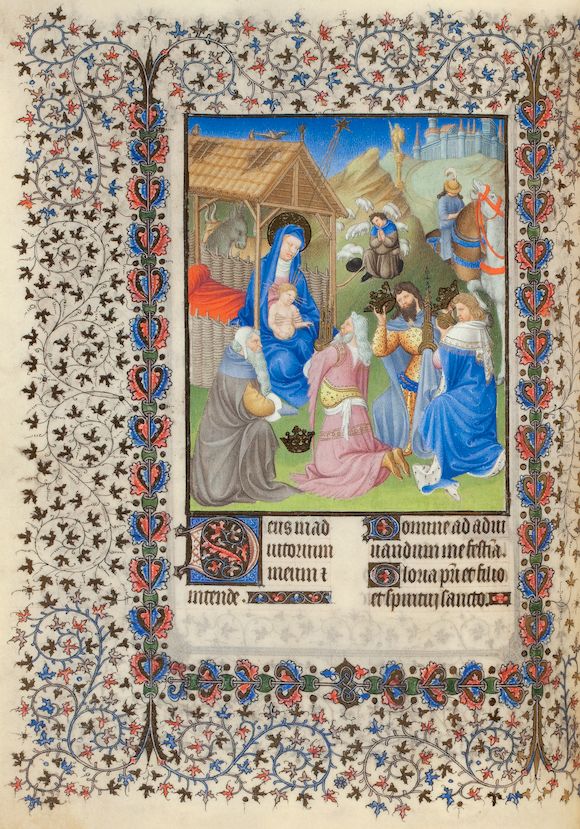 Deus in ad
iutorium
meum i
ntende.
Domine ad adiu
uandum me festīa.
Gloria pr̄i et filio
et spiritui sancto.